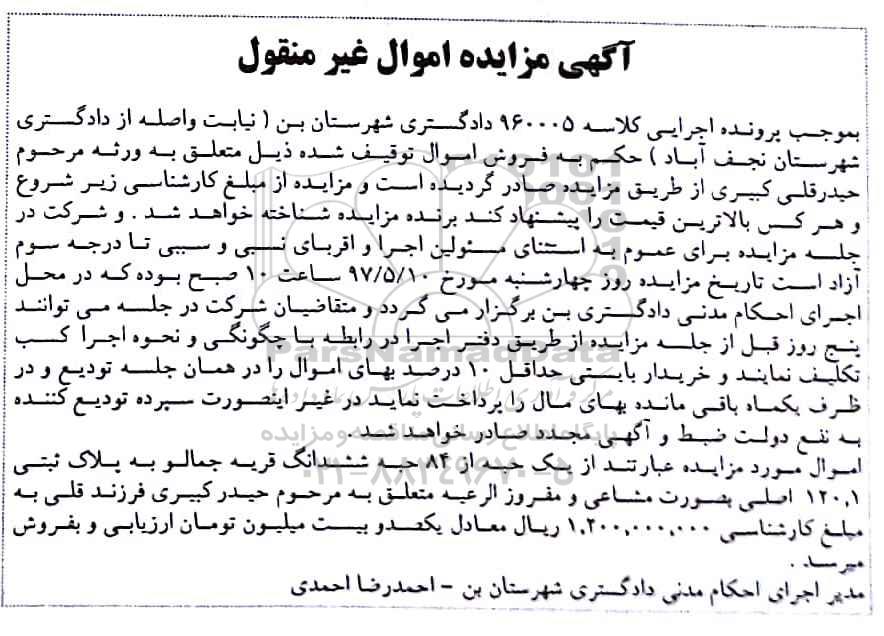 آگهی مزایده اموال غیر منقول
بموجب پرونده اجرایی کلاسه ۹۶۰۰۰۵ دادگستری شهرستان بن ( نیابت واصله از دادگستری
شهرستان نجف آباد ) حکم به فروش اموال توقیف شده ذیل متعلق به ورثه مرحوم
حیدرقلی کبیری از طریق مزایده صادر گردیده است و مزایده از مبلغ کارشناسی زیر شروع
و هر کس بالاترین قیمت را پیشنهاد کند برنده مزایده شناخته خواهد شد . و شرکت در
جلسه مزایده برای عموم به استثنای مسئولین اجرا و اقربای نسبی و سببی تا درجه سوم
آزاد است تاریخ مزایده روز چهارشنبه مورخ ۹۷/۵/۱۰ ساعت ۱۰ صبح بوده که در محل
اجرای احکام مدنی دادگستری بن برگزار می گردد و متقاضیان شرکت در جلسه می توانند
پنج روز قبل از جلسه مزایده از طریق دفتر اجرا در رابطه با چگونگی و نحوه اجرا کسب
ParsNamadData
تکلیف نمایند و خریدار بایستی حداقل ۱۰ درصد بهای اموال را در همان جلسه تودیع و در
ظرف یکماه باقی مانده بهای مال را پرداخت نماید در غیر اینصورت سپرده تودیع کننده
به نفع دولت ضبط و آگهی مجدد صادر خواهد شد .
اموال مورد مزایده عبارتند از یک حبه از ۸۴ حبه ششدانگ قریه جمالو به پلاک ثبتی
۰۲۱-۸۸۳۴۹۶۷۰-۵
۱۲۰٫۱ اصلی بصورت مشاعی و مفروز الرعیه متعلق به مرحوم حیدر کبیری فرزند قلی به
مبلغ کارشناسی ۱,۲۰۰,۰۰۰,۰۰۰ ریال معادل یکصدو بیست میلیون تومان ارزیابی و بفروش
میرسد .
مدیر اجرای احکام مدنی دادگستری شهرستان بن - احمدرضا احمدی